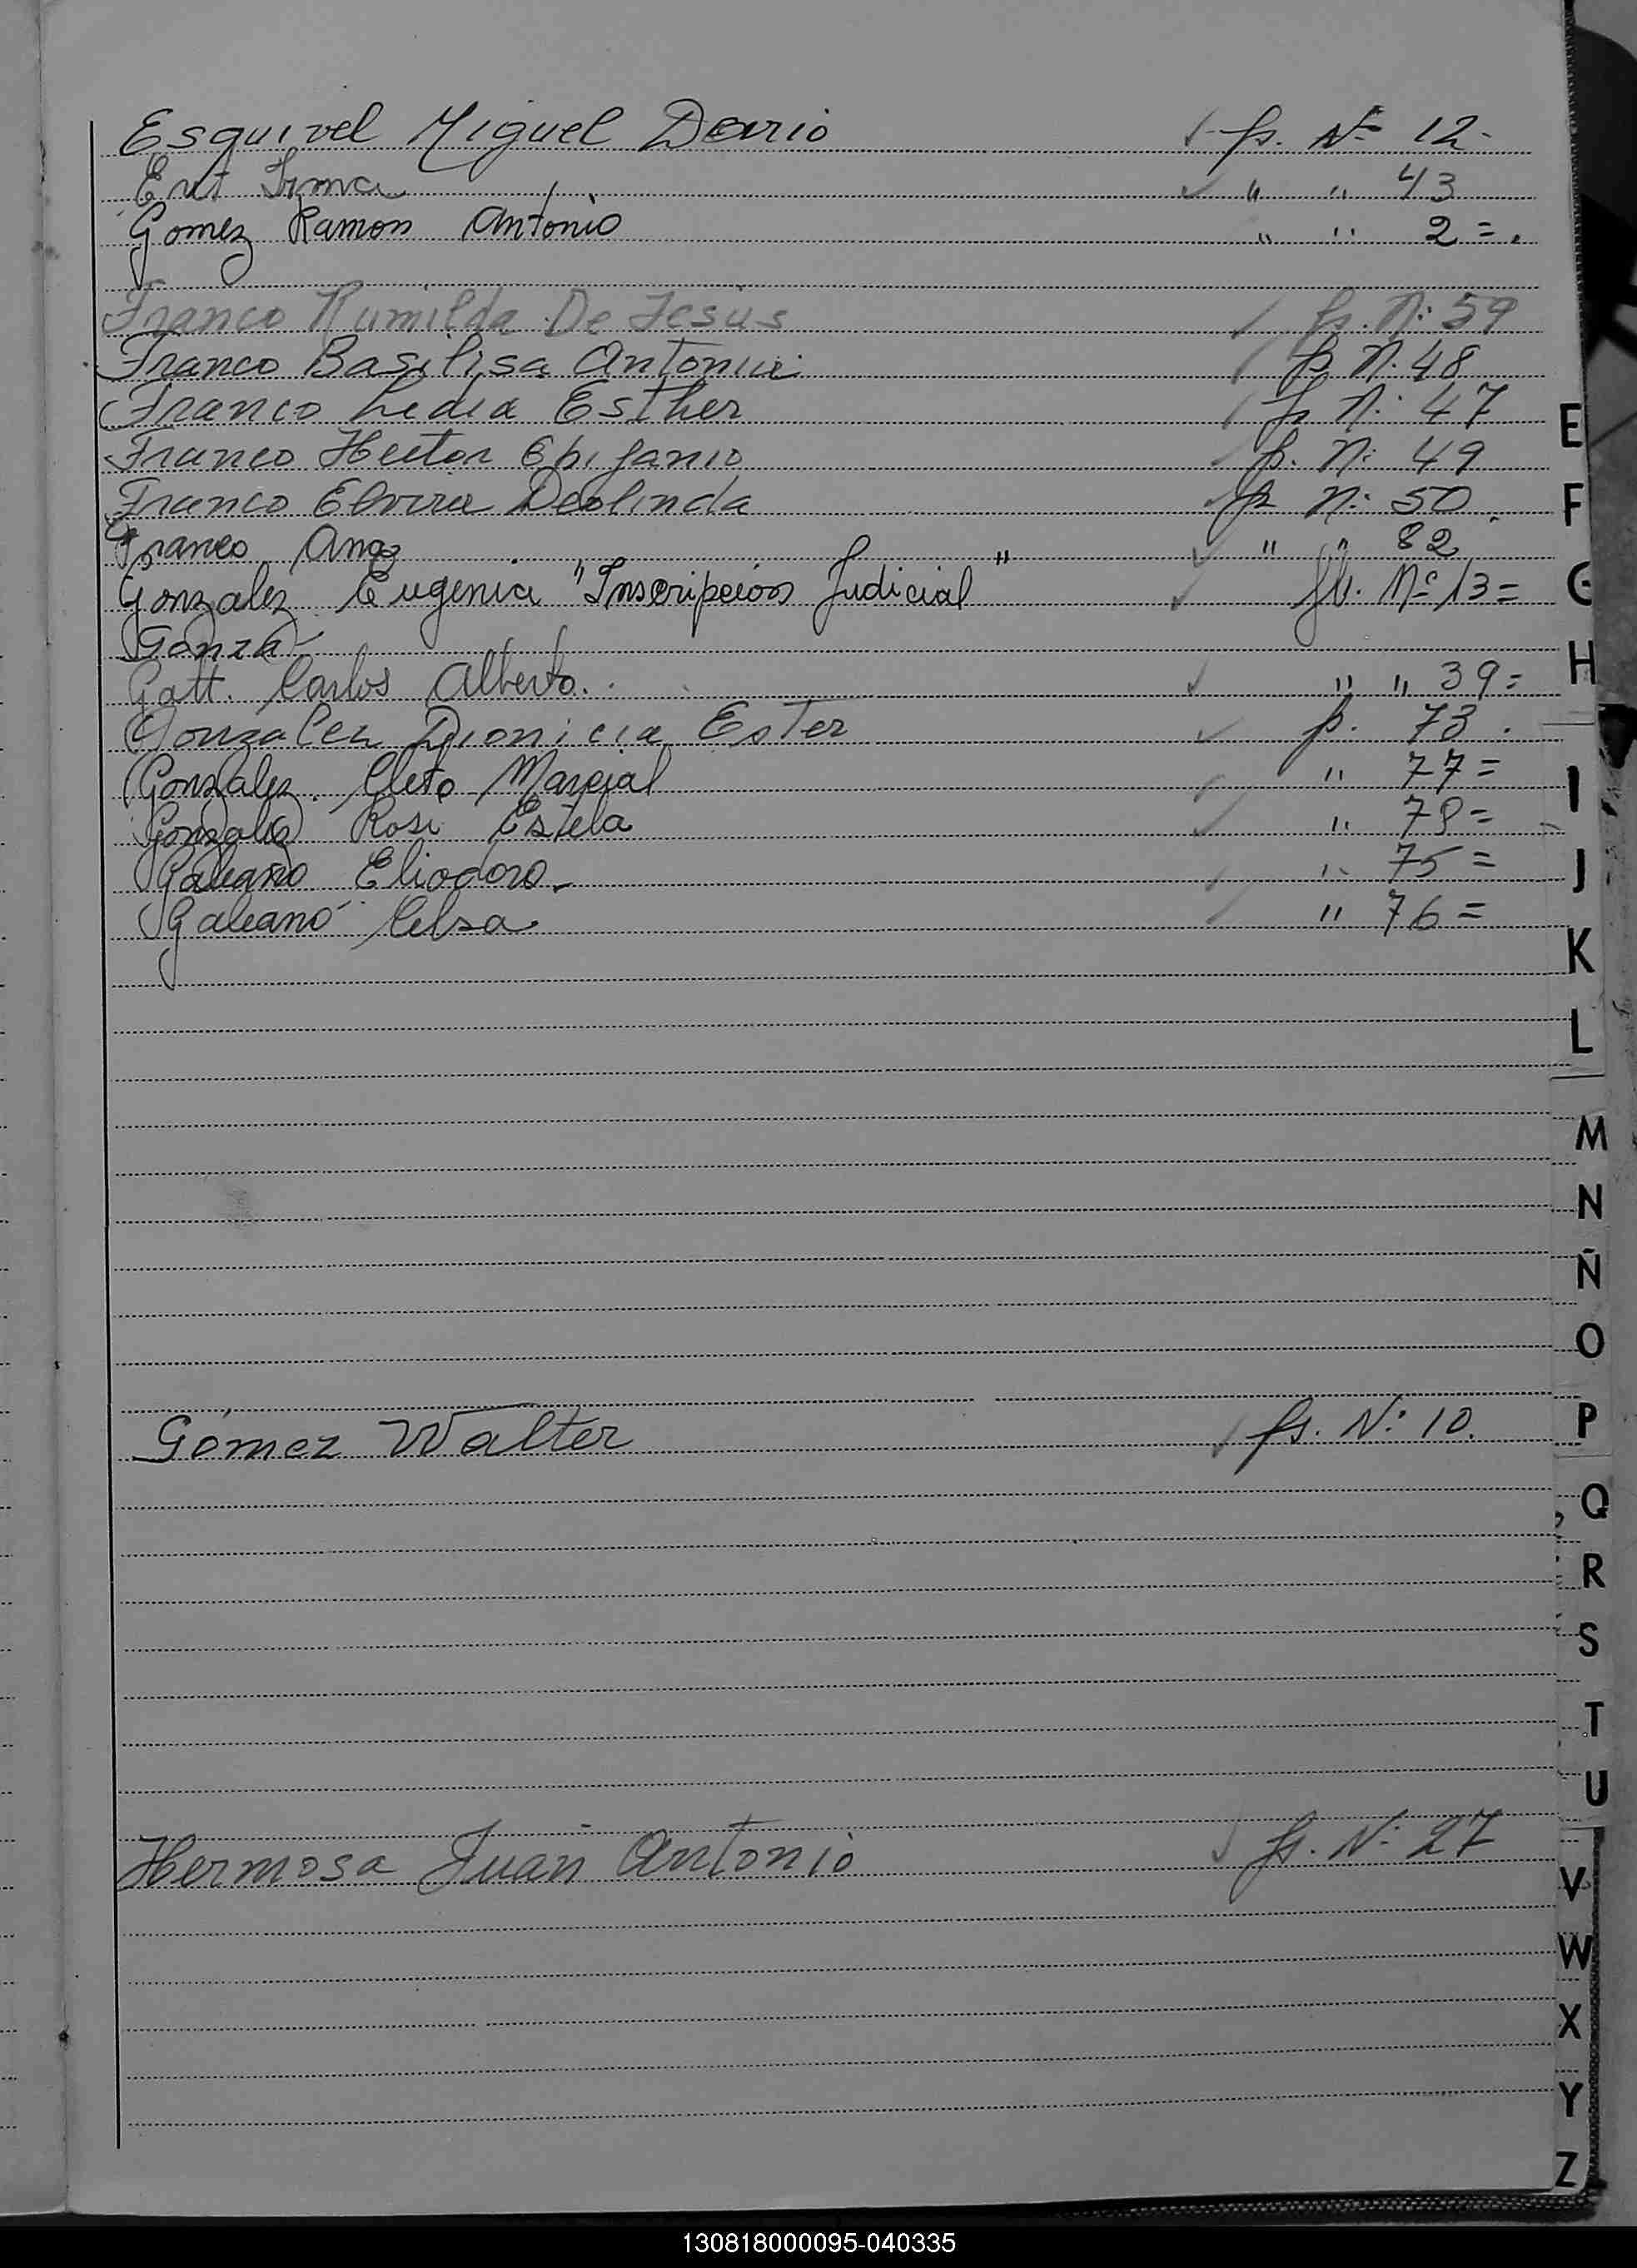 Esquivel Miguel Dario fs. Nº 12-
Ent Irma " " 43
Gomez Ramon Antonio " " 2=.
Franco Rumilda De Jesús fs. N: 59
Franco Basilisa Antonia fs N. 48
Franco Ledia Esther fs N: 47
Franco Hector Epifanio fs. N: 49
Franco Elvira Deolinda fs N: 50.
Franco Ana " " 82
Gonzalez Eugenia "Inscripcion Judicial" Nº 13=
Gonza
Gatt. Carlos Alberto. " " 39=
Gonzalez Dionicia Ester fs. 73.
Gonzalez. Cleto Marcial " 77=
Gonzalez Rosa Estela " 78=
Galeano Eliodoro. " 75=
Galeano Celsa " 76=
Gómez Walter fs. N: 10.
Hermosa Juan Antonio fs. N: 27
E
F
G
H
I
J
K
L
M
N
Ñ
O
P
Q
R
S
T
U
V
W
X
Y
Z
130818000095-040335